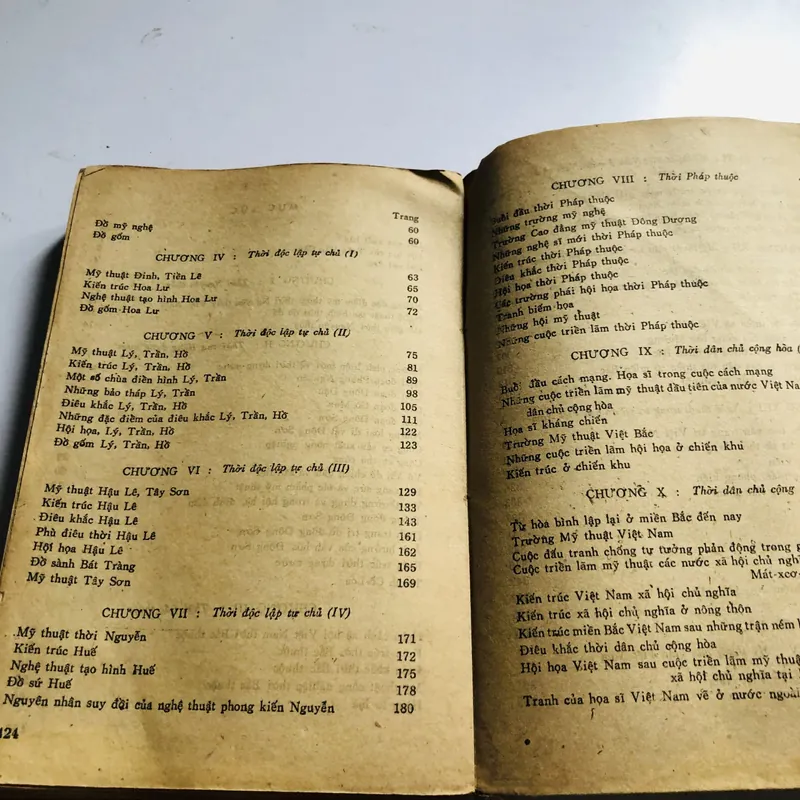 Trang
Đồ mỹ nghệ 60
Đồ gốm 60
CHƯƠNG IV : Thời độc lập tự chủ (I)
Mỹ thuật Đinh, Tiền Lê 63
Kiến trúc Hoa Lư 65
Nghệ thuật tạo hình Hoa Lư 70
Đồ gốm Hoa Lư 72
CHƯƠNG V : Thời độc lập tự chủ (II)
Mỹ thuật Lý, Trần, Hồ 75
Kiến trúc Lý, Trần, Hồ 81
Một số chùa điển hình Lý, Trần 89
Những bảo tháp Lý, Trần 98
Điêu khắc Lý, Trần, Hồ 105
Những đặc điểm của điêu khắc Lý, Trần, Hồ 111
Hội họa, Lý, Trần, Hồ 122
Đồ gốm Lý, Trần, Hồ 123
CHƯƠNG VI : Thời độc lập tự chủ (III)
Mỹ thuật Hậu Lê, Tây Sơn 129
Kiến trúc Hậu Lê 133
Điêu khắc Hậu Lê 143
Phù điêu thời Hậu Lê 161
Hội họa Hậu Lê 162
Đồ sành Bát Tràng 165
Mỹ thuật Tây Sơn 169
CHƯƠNG VII : Thời độc lập tự chủ (IV)
Mỹ thuật thời Nguyễn 171
Kiến trúc Huế 172
Nghệ thuật tạo hình Huế 175
Đồ sứ Huế 178
Nguyên nhân suy đồi của nghệ thuật phong kiến Nguyễn 180
124
CHƯƠNG VIII : Thời Pháp thuộc
đầu thời Pháp thuộc
Những trường mỹ nghệ
Trường Cao đẳng mỹ thuật Đông Dương
Những nghệ sĩ mới thời Pháp thuộc
Kiến trúc thời Pháp thuộc
Điêu khắc thời Pháp thuộc
Hội họa thời Pháp thuộc
Các trường phái hội họa thời Pháp thuộc
Tranh biếm họa
Những hội mỹ thuật
Những cuộc triển lãm thời Pháp thuộc
CHƯƠNG IX : Thời dân chủ cộng hòa (
Buổi đầu cách mạng. Họa sĩ trong cuộc cách mạng
Những cuộc triển lãm mỹ thuật đầu tiên của nước Việt Nam
dân chủ cộng hòa
Họa sĩ kháng chiến
Trường Mỹ thuật Việt Bắc
Những cuộc triển lãm hội họa ở chiến khu
Kiến trúc ở chiến khu
CHƯƠNG X : Thời dân chủ cộng
Từ hòa bình lập lại ở miền Bắc đến nay
Trường Mỹ thuật Việt Nam
Cuộc đấu tranh chống tư tưởng phản động trong g
Cuộc triển lãm mỹ thuật các nước xã hội chủ nghĩ
Mát-xcơ
Kiến trúc Việt Nam xã hội chủ nghĩa
Kiến trúc xã hội chủ nghĩa ở nông thôn
Kiến trúc miền Bắc Việt Nam sau những trận ném
Điêu khắc thời dân chủ cộng hòa
Hội họa Việt Nam sau cuộc triển lãm mỹ thuật
xã hội chủ nghĩa tại
Tranh của họa sĩ Việt Nam vẽ ở nước ngoài